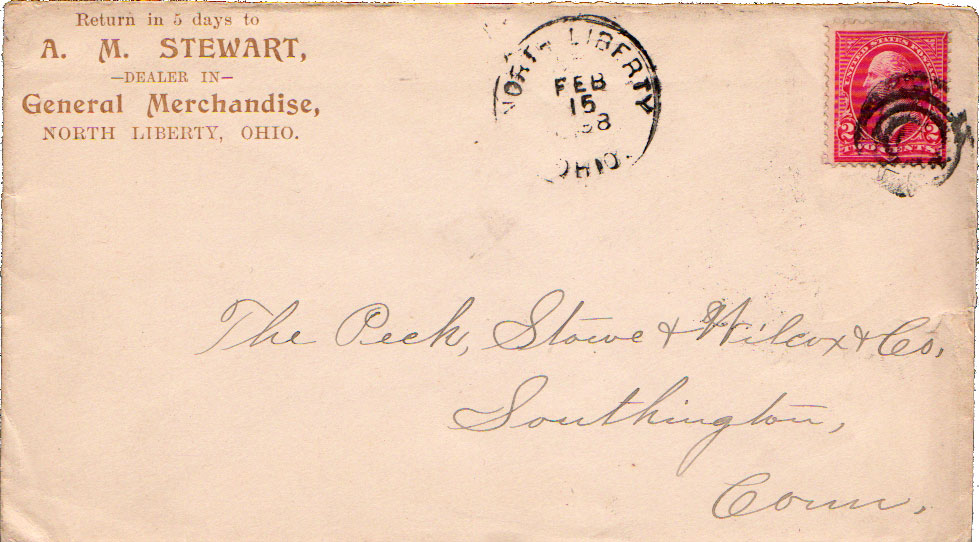 Return in 5 days to
A. M. STEWART,
—DEALER IN—
General Merchandise,
NORTH LIBERTY, OHIO.
NORTH LIBERTY
FEB
15
98
OHIO.
UNITED STATES POSTAGE
2 2
TWO CENTS
The Peck, Stowe & Wilcox & Co.
Southington,
Conn.